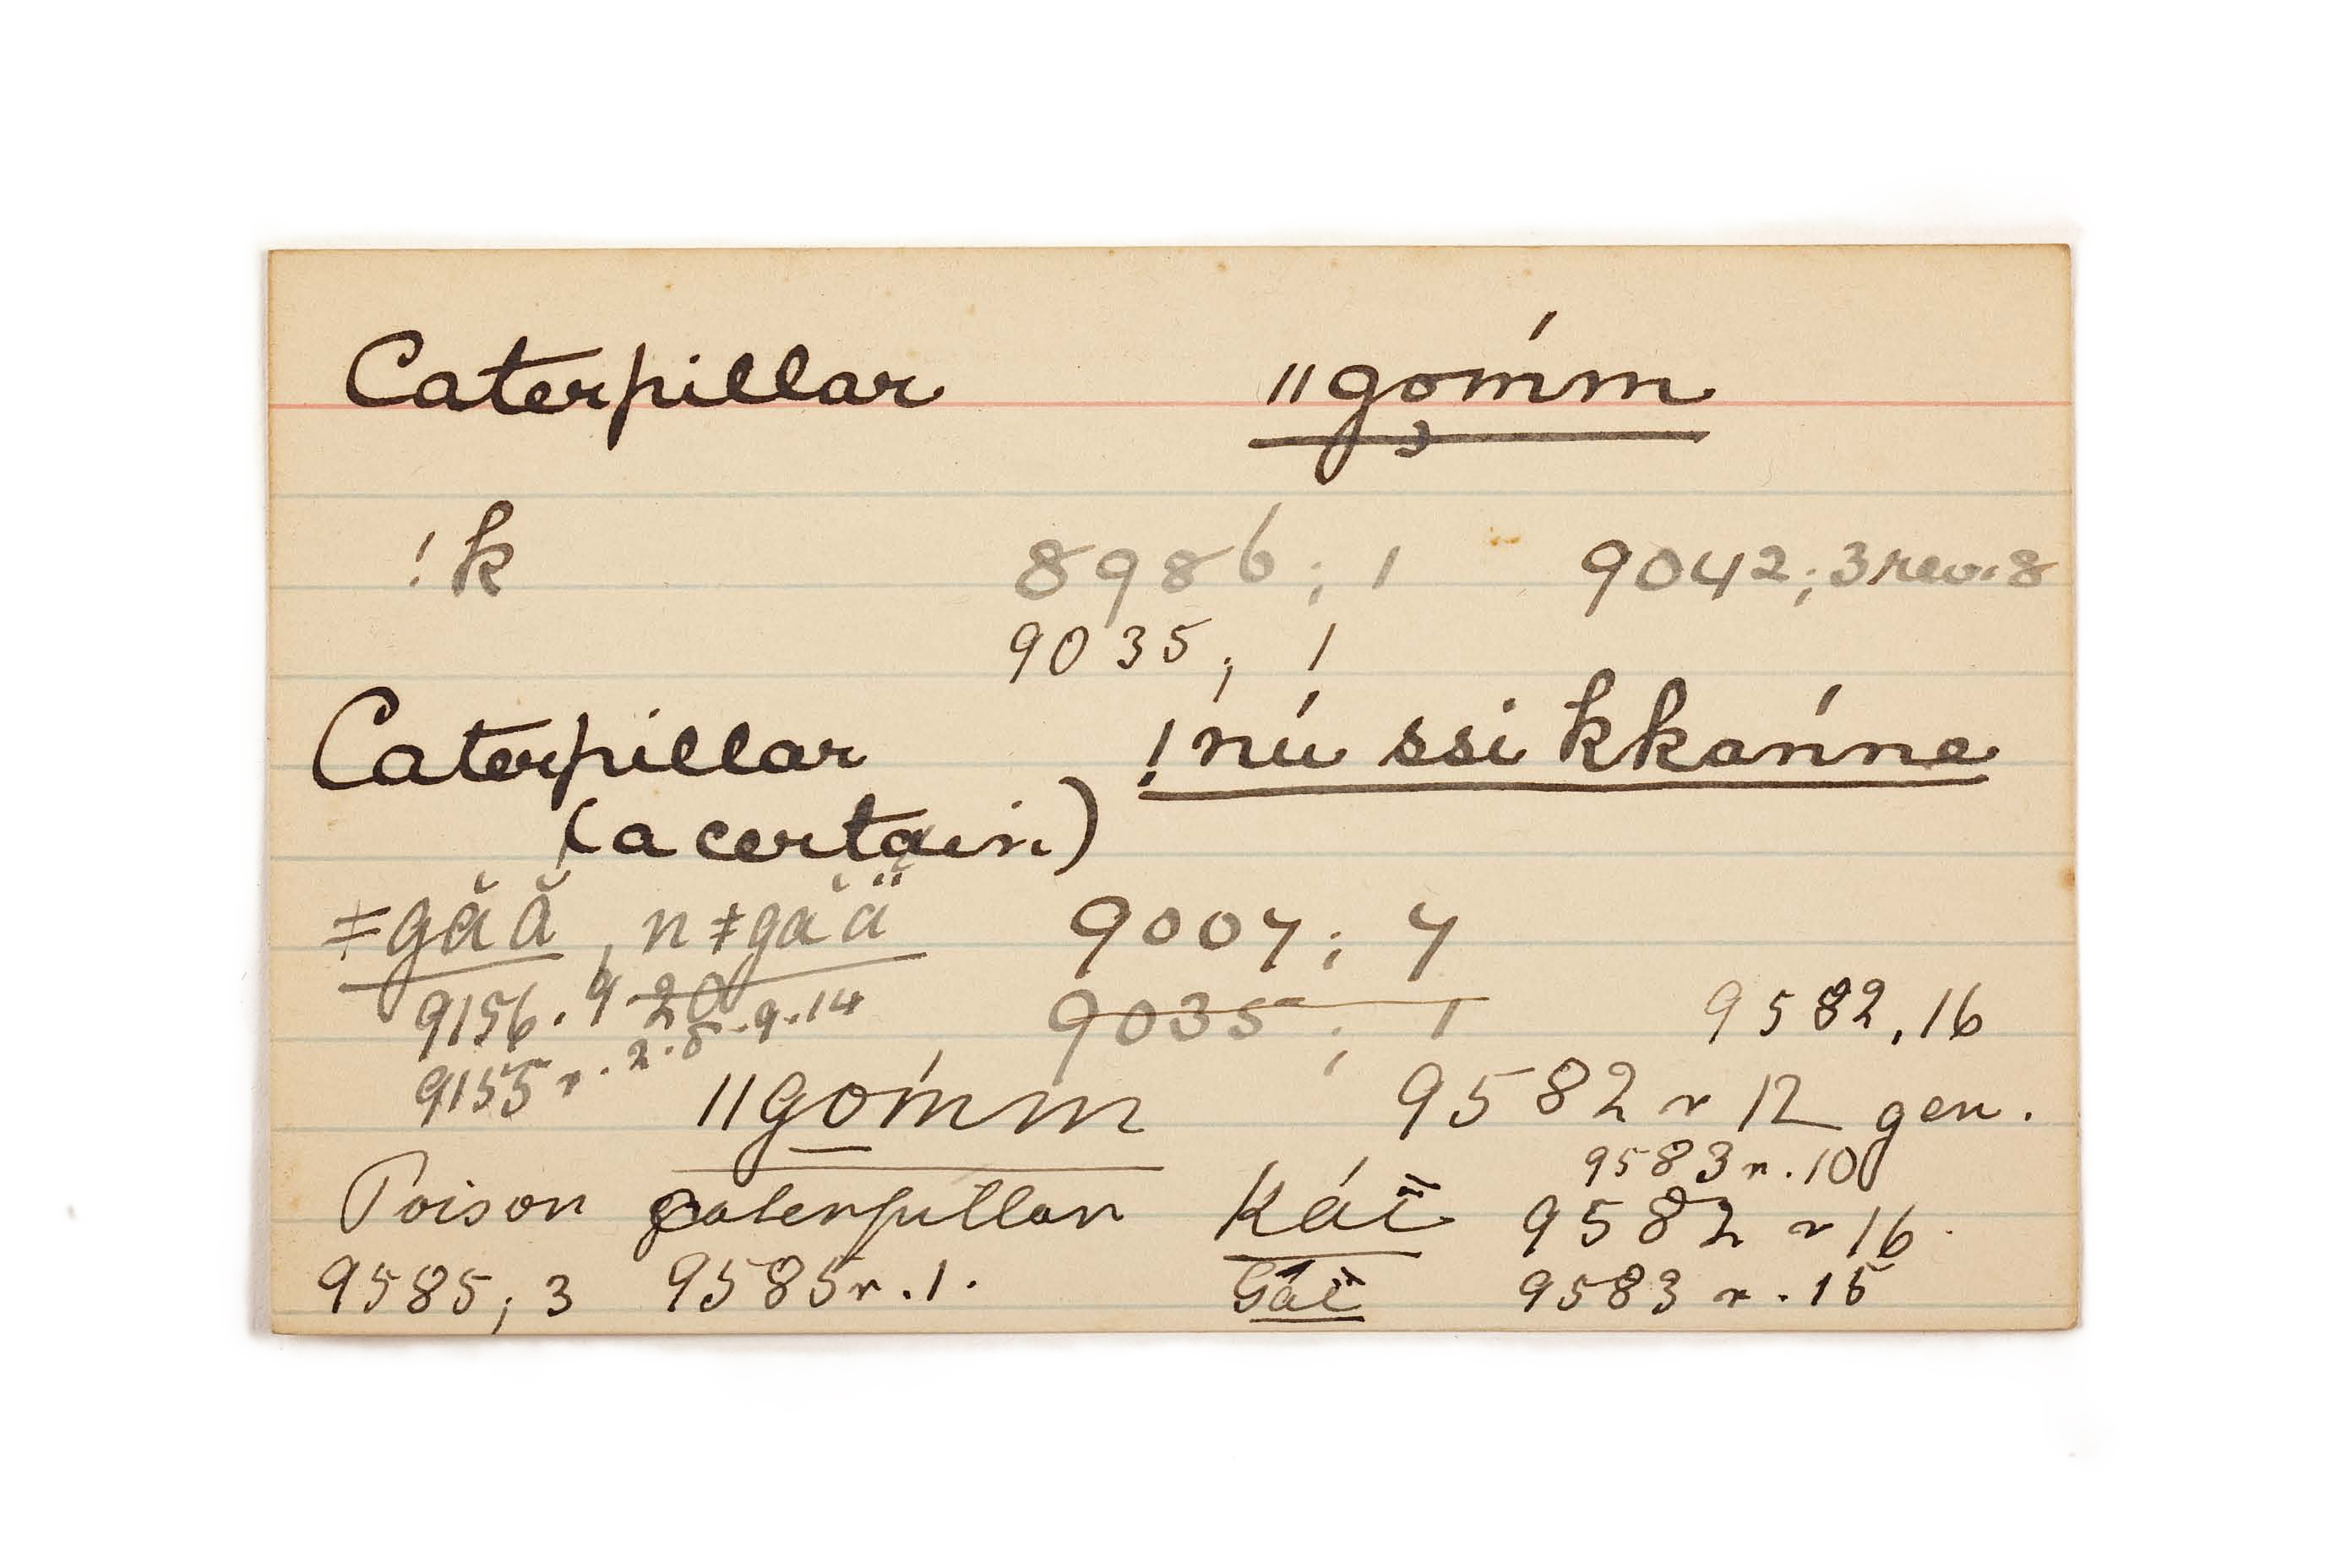 Caterpillar ǁgo̜m̀m
!k 8986; 1 9042; 3 rev. 8
9035; 1
Caterpillar !nú ssi kkańne
(a certain)
ǂgă ă, nǂgă ä̆ 9007; 7
9156. 9 20 9035; 1 9582, 16
9155 r. 2. 8. 9. 14
ǁgo̱ḿm 9582 r 12 gen.
9583 r. 10
Poison caterpillar Káĩ 9582 r 16.
9585; 3 9585 r. 1. Gáĩ 9583 r. 15